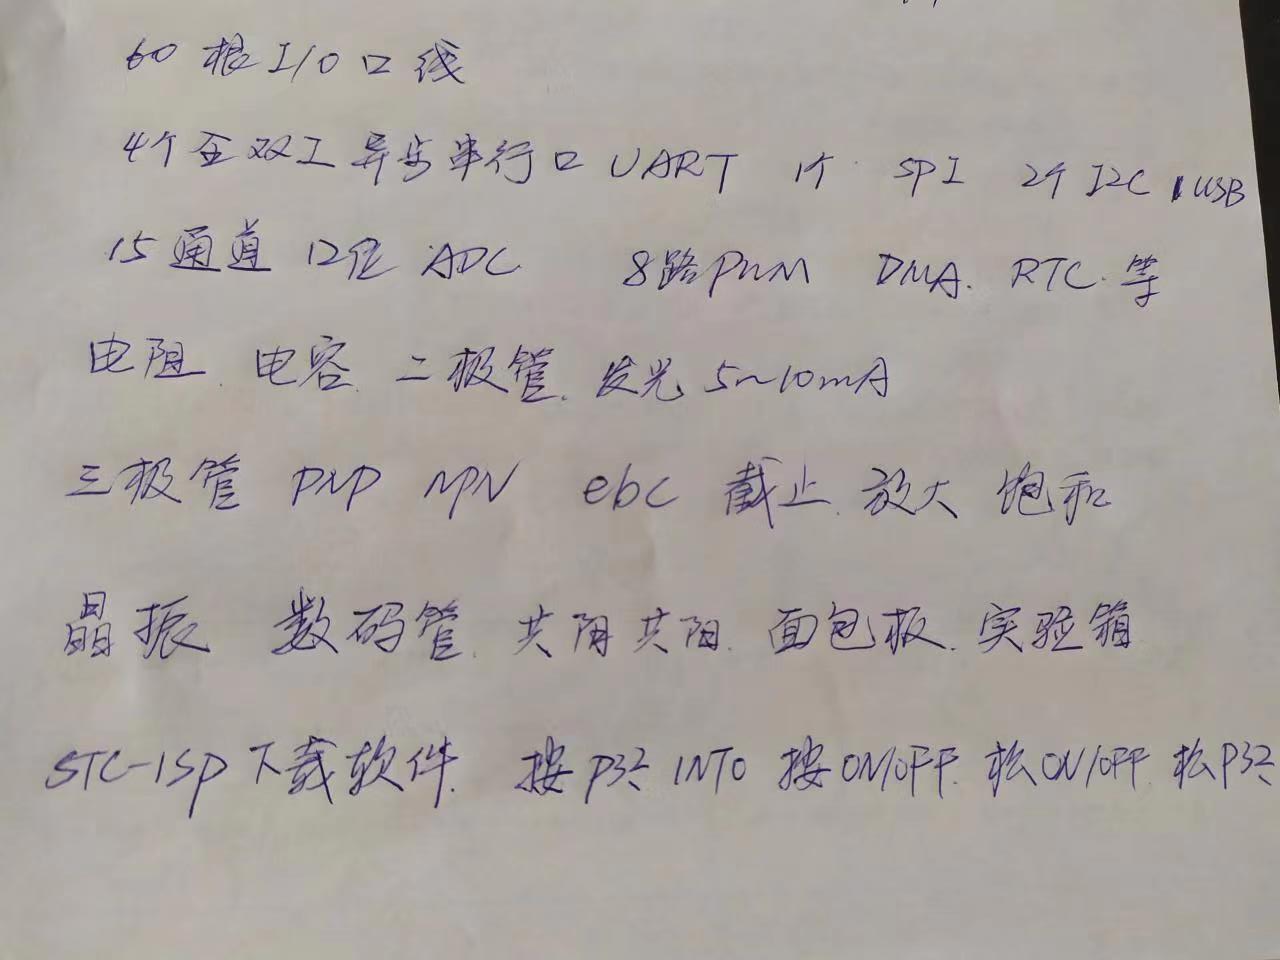 60根I/O口线
4个全双工异步串行口UART 1个 SPI 2个I2C 1USB
15通道 12位 ADC 8路PWM DMA. RTC.等
电阻.电容.二极管.发光5~10mA
三极管 PNP NPN ebc 截止.放大 饱和
晶振 数码管.共阴共阳.面包板.实验箱
STC-ISP下载软件. 按P32 INT0 按ON/OFF.松ON/OFF 松P32